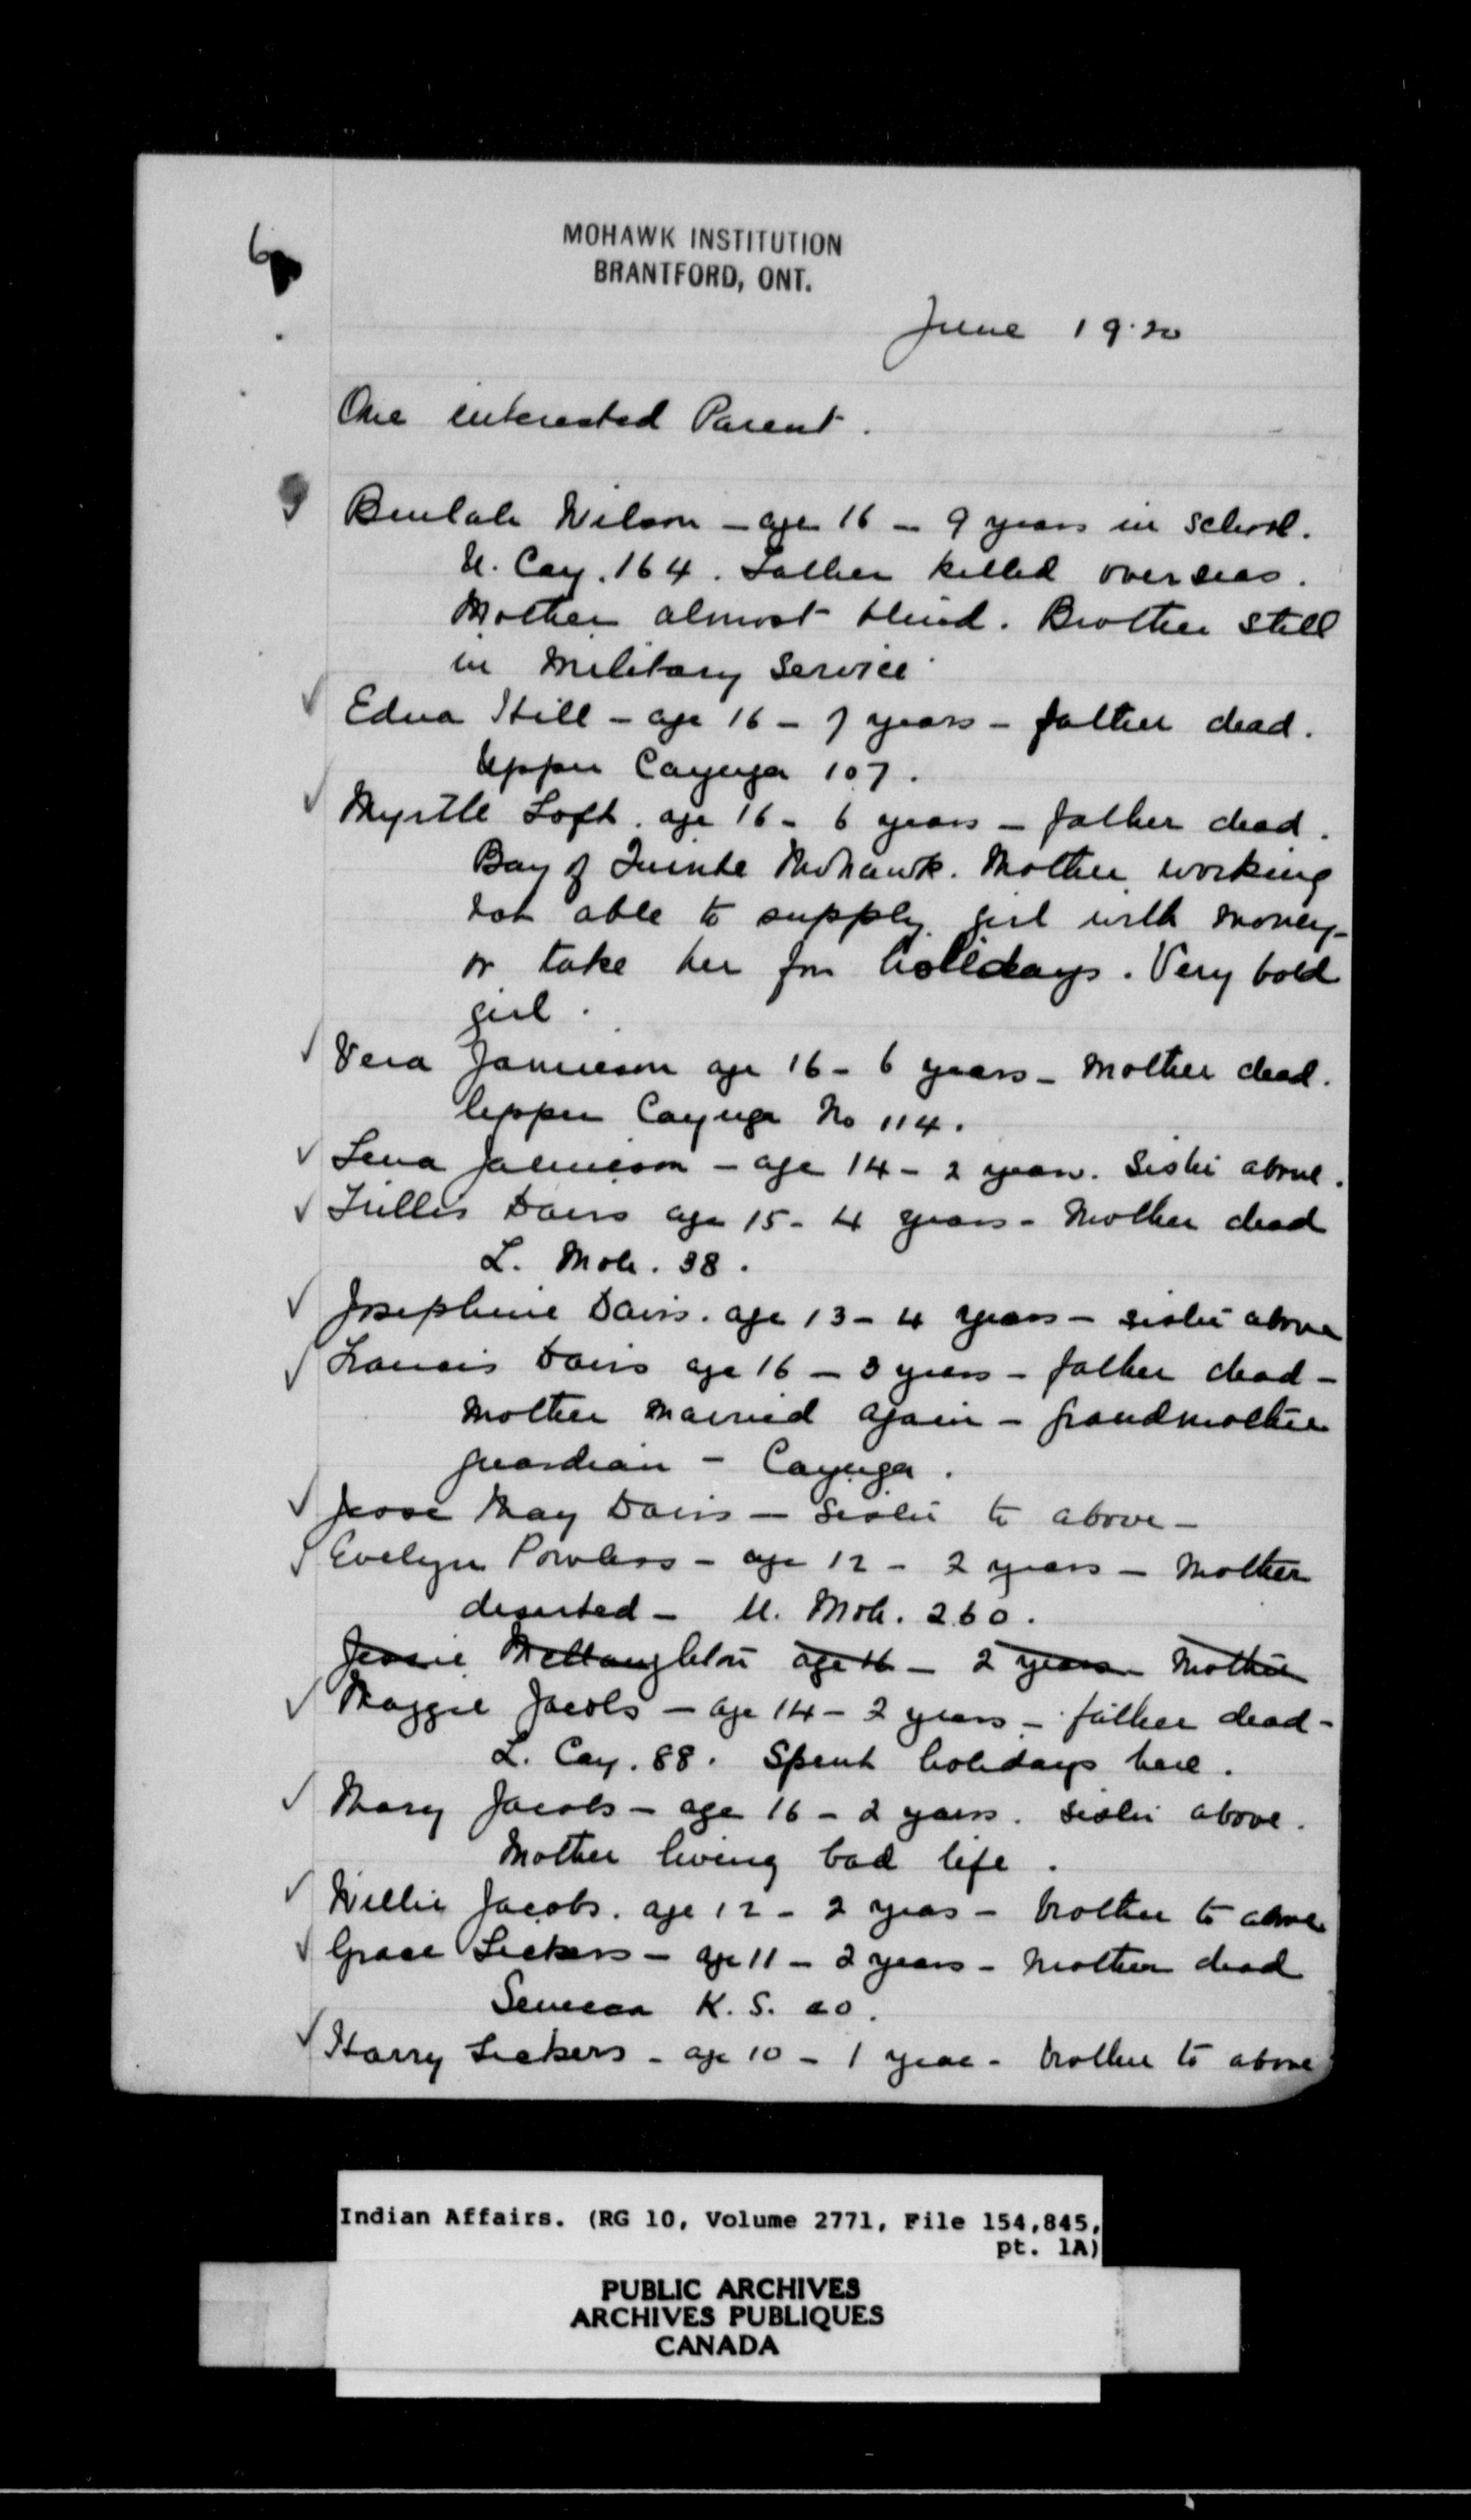 6
MOHAWK INSTITUTION
BRANTFORD, ONT.
June 19.20
One interested Parent.
Beulah Wilson - age 16 - 9 years in school.
U. Cay. 164. Father killed overseas.
Mother almost blind. Brother still
in Military Service.
✓ Edna Hill - age 16 - 7 years - father dead.
Upper Cayuga 107.
✓ Myrtle Loft. age 16 - 6 years - father dead.
Bay of Quinte Mohawk. Mother working
not able to supply girl with money -
or take her for holidays. Very bold
girl.
✓ Vera Jamieson age 16 - 6 years - Mother dead.
Upper Cayuga No 114.
✓ Lena Jamieson - age 14 - 2 years. Sister above.
✓ Davis age 15 - 4 years - Mother dead
L. Moh. 38.
✓ Josephine Davis. age 13 - 4 years - sister above
✓ Francis Davis age 16 - 3 years - father dead -
Mother married again - grandmother
guardian - Cayuga.
✓ Jesse May Davis - Sister to above -
✓ Evelyn Powless - age 12 - 2 years - Mother
deserted - U. Moh. 260.
Jessie McNaughton age 16 - 2 years Mother
✓ Maggie Jacobs - age 14 - 2 years - father dead -
L. Cay. 88. Spent holidays here.
✓ Mary Jacobs - age 16 - 2 years. sister above.
Mother living bad life.
✓ Willie Jacobs. age 12 - 2 years - brother to above
✓ Grace Lickers - age 11 - 2 years - Mother dead
Seneca K. S. 20.
✓ Harry Lickers - age 10 - 1 year - brother to above
Indian Affairs. (RG 10, Volume 2771, File 154,845,
pt. 1A)
PUBLIC ARCHIVES
ARCHIVES PUBLIQUES
CANADA